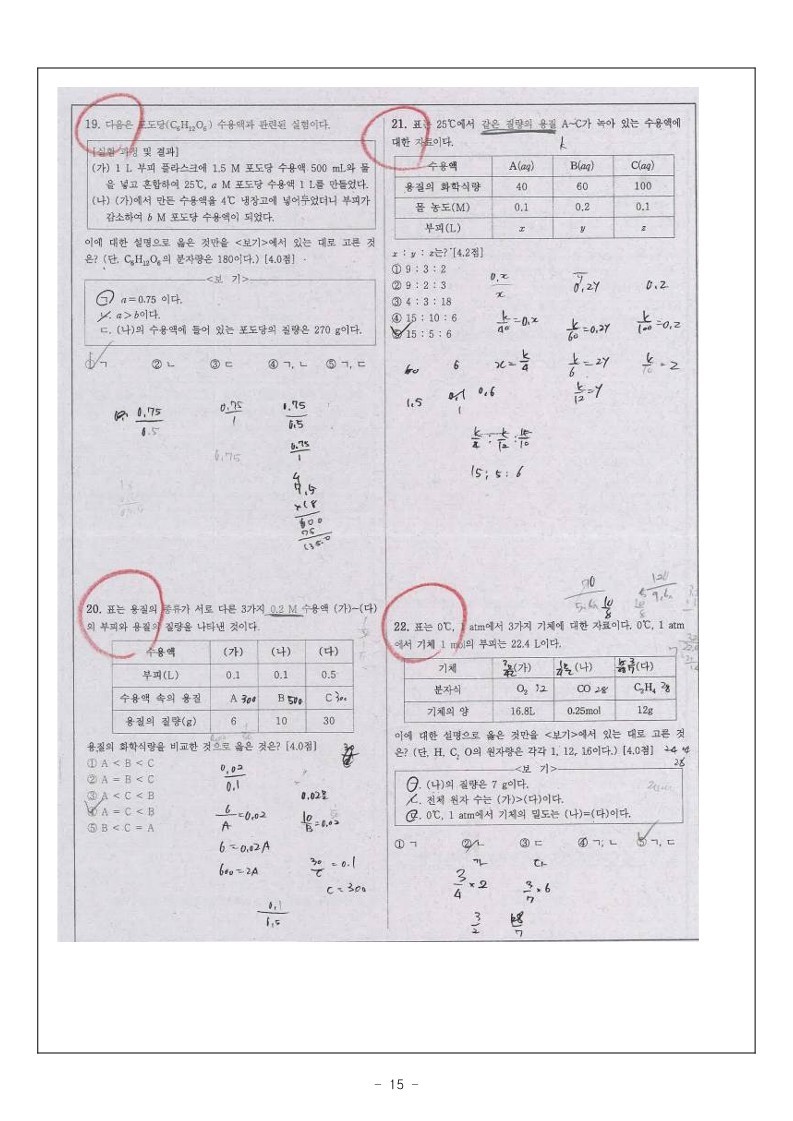 19. 다음은 포도당(C₆H₁₂O₆) 수용액과 관련된 실험이다.
[실험 과정 및 결과]
(가) 1 L 부피 플라스크에 1.5 M 포도당 수용액 500 mL와 물
을 넣고 혼합하여 25℃, a M 포도당 수용액 1 L를 만들었다.
(나) (가)에서 만든 수용액을 4℃ 냉장고에 넣어두었더니 부피가
감소하여 b M 포도당 수용액이 되었다.
이에 대한 설명으로 옳은 것만을 <보기>에서 있는 대로 고른 것
은? (단, C₆H₁₂O₆의 분자량은 180이다.) [4.0점]
<보 기>
ㄱ. a = 0.75 이다.
ㄴ. a > b이다.
ㄷ. (나)의 수용액에 들어 있는 포도당의 질량은 270 g이다.
① ㄱ ② ㄴ ③ ㄷ ④ ㄱ, ㄴ ⑤ ㄱ, ㄷ
0.75 0.75 0.75
0.5 1 0.5
0.75
0.75
1
7.5
×18
600
75
1350
20. 표는 용질의 종류가 서로 다른 3가지 0.2 M 수용액 (가)~(다)
의 부피와 용질의 질량을 나타낸 것이다.
수용액 (가) (나) (다)
부피(L) 0.1 0.1 0.5
수용액 속의 용질 A 300 B 500 C 300
용질의 질량(g) 6 10 30
용질의 화학식량을 비교한 것으로 옳은 것은? [4.0점]
① A < B < C
② A = B < C
③ A < C < B
④ A = C < B
⑤ B < C = A
0.02
0.1
0.02몰
6/A = 0.02
10/B = 0.02
6 = 0.02A
600 = 2A
30/C = 0.1
C = 300
0.1
0.5
21. 표는 25℃에서 같은 질량의 용질 A~C가 녹아 있는 수용액에
대한 자료이다.
k
수용액 A(aq) B(aq) C(aq)
용질의 화학식량 40 60 100
몰 농도(M) 0.1 0.2 0.1
부피(L) x y z
x : y : z는? [4.2점]
① 9 : 3 : 2
② 9 : 2 : 3
③ 4 : 3 : 18
④ 15 : 10 : 6
⑤ 15 : 5 : 6
0.x
x
y
0.2y
0.2
k/40 = 0.x
k/60 = 0.2y
k/100 = 0.z
60 6
x = k/4
k/6 = 2y
k/10 = z
1.5 0.1 0.6
1
k/12 = y
k/4 : k/12 : k/10
15 ; 5 : 6
22. 표는 0℃, 1 atm에서 3가지 기체에 대한 자료이다. 0℃, 1 atm
에서 기체 1 mol의 부피는 22.4 L이다.
기체 (가) (나) (다)
분자식 O₂ 32 CO 28 C₂H₄ 28
기체의 양 16.8L 0.25mol 12g
이에 대한 설명으로 옳은 것만을 <보기>에서 있는 대로 고른 것
은? (단, H, C, O의 원자량은 각각 1, 12, 16이다.) [4.0점] 24 4
28
<보 기>
ㄱ. (나)의 질량은 7 g이다.
ㄴ. 전체 원자 수는 (가)>(다)이다.
ㄷ. 0℃, 1 atm에서 기체의 밀도는 (나)=(다)이다.
① ㄱ ② ㄴ ③ ㄷ ④ ㄱ, ㄴ ⑤ ㄱ, ㄷ
가 다
3/4 × 2
3/7 × 6
3/2
18/7
- 15 -